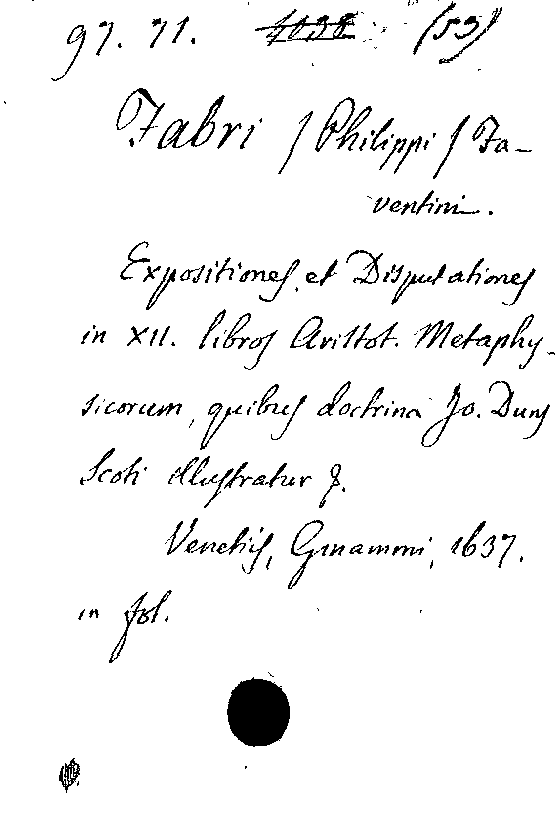 97. 71. 4038 (53)
Fabri / Philippi / Fa-
ventini.
Expositiones et Disputationes
in XII. libros Aristot. Metaphy-
sicorum, quibus doctrina Jo. Duns
Scoti illustratur &.
Venetiis, Ginammi, 1637.
in fol.